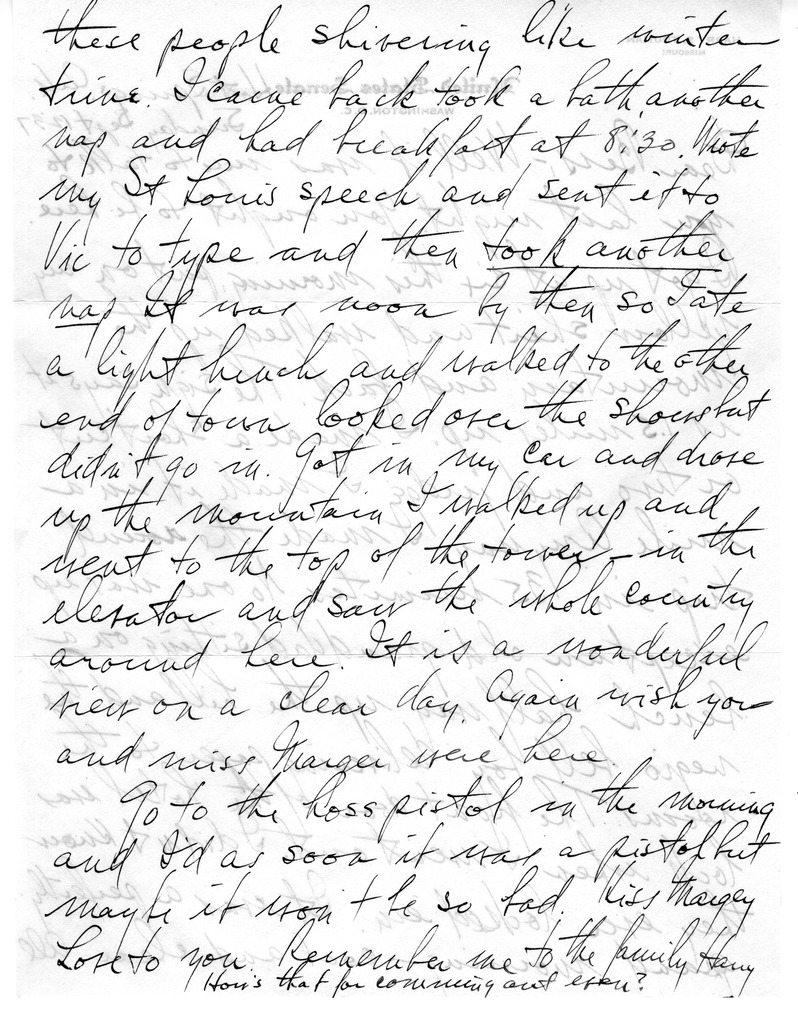 these people shivering like winter
time. I came back took a bath, another
nap and had breakfast at 8:30. Wrote
my St Louis speech and sent it to
Vic to type and then took another
nap It was noon by then so I ate
a light lunch and walked to the other
end of town looked over the shows but
didn't go in. Got in my car and drove
up the mountain I walked up and
went to the top of the tower - in the
elevator and saw the whole country
around here. It is a wonderful
view on a clear day. Again wish you
and miss Marger were here.
Go to the hoss pistol in the morning
and I'd as soon it was a pistol but
maybe it won't be so bad. Kiss Margey
Love to you. Remember me to the family Harry
How's that for comming out even?